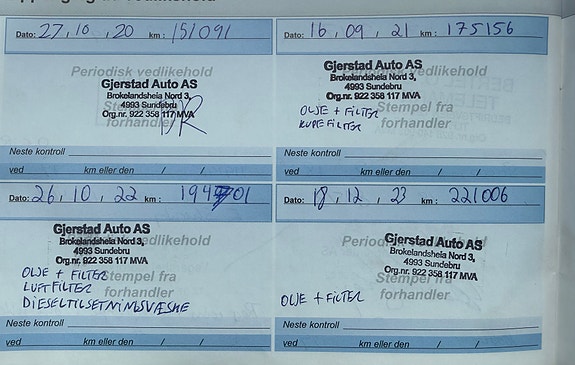 Dato: 27, 10, 20 km: 151091
Periodisk vedlikehold
Gjerstad Auto AS
Brokelandsheia Nord 3,
4993 Sundebru
Org.nr. 922 358 117 MVA
forhandler
Neste kontroll
ved km eller den / /
Dato: 16, 09, 21 km: 175156
Gjerstad Auto AS
Brokelandsheia Nord 3,
4993 Sundebru
Org.nr. 922 358 117 MVA
OLJE + FILTER
Stempel fra
KUPEFILTER
forhandler
Neste kontroll
ved km eller den / /
Dato: 26, 10, 22 km:
Gjerstad Auto AS
Brokelandsheia Nord 3,
vedlikehold
4993 Sundebru
Org.nr. 922 358 117 MVA
OLJE + FILTER
Stempel fra
LUFTFILTER
forhandler
DIESELTILSETNINGSVÆSKE
Neste kontroll
ved km eller den / /
Dato: 18, 12, 23 km: 221006
Gjerstad Auto AS
Brokelandsheia Nord 3,
4993 Sundebru
Org.nr. 922 358 117 MVA
Stempel fra
OLJE + FILTER
forhandler
Neste kontroll
ved km eller den / /